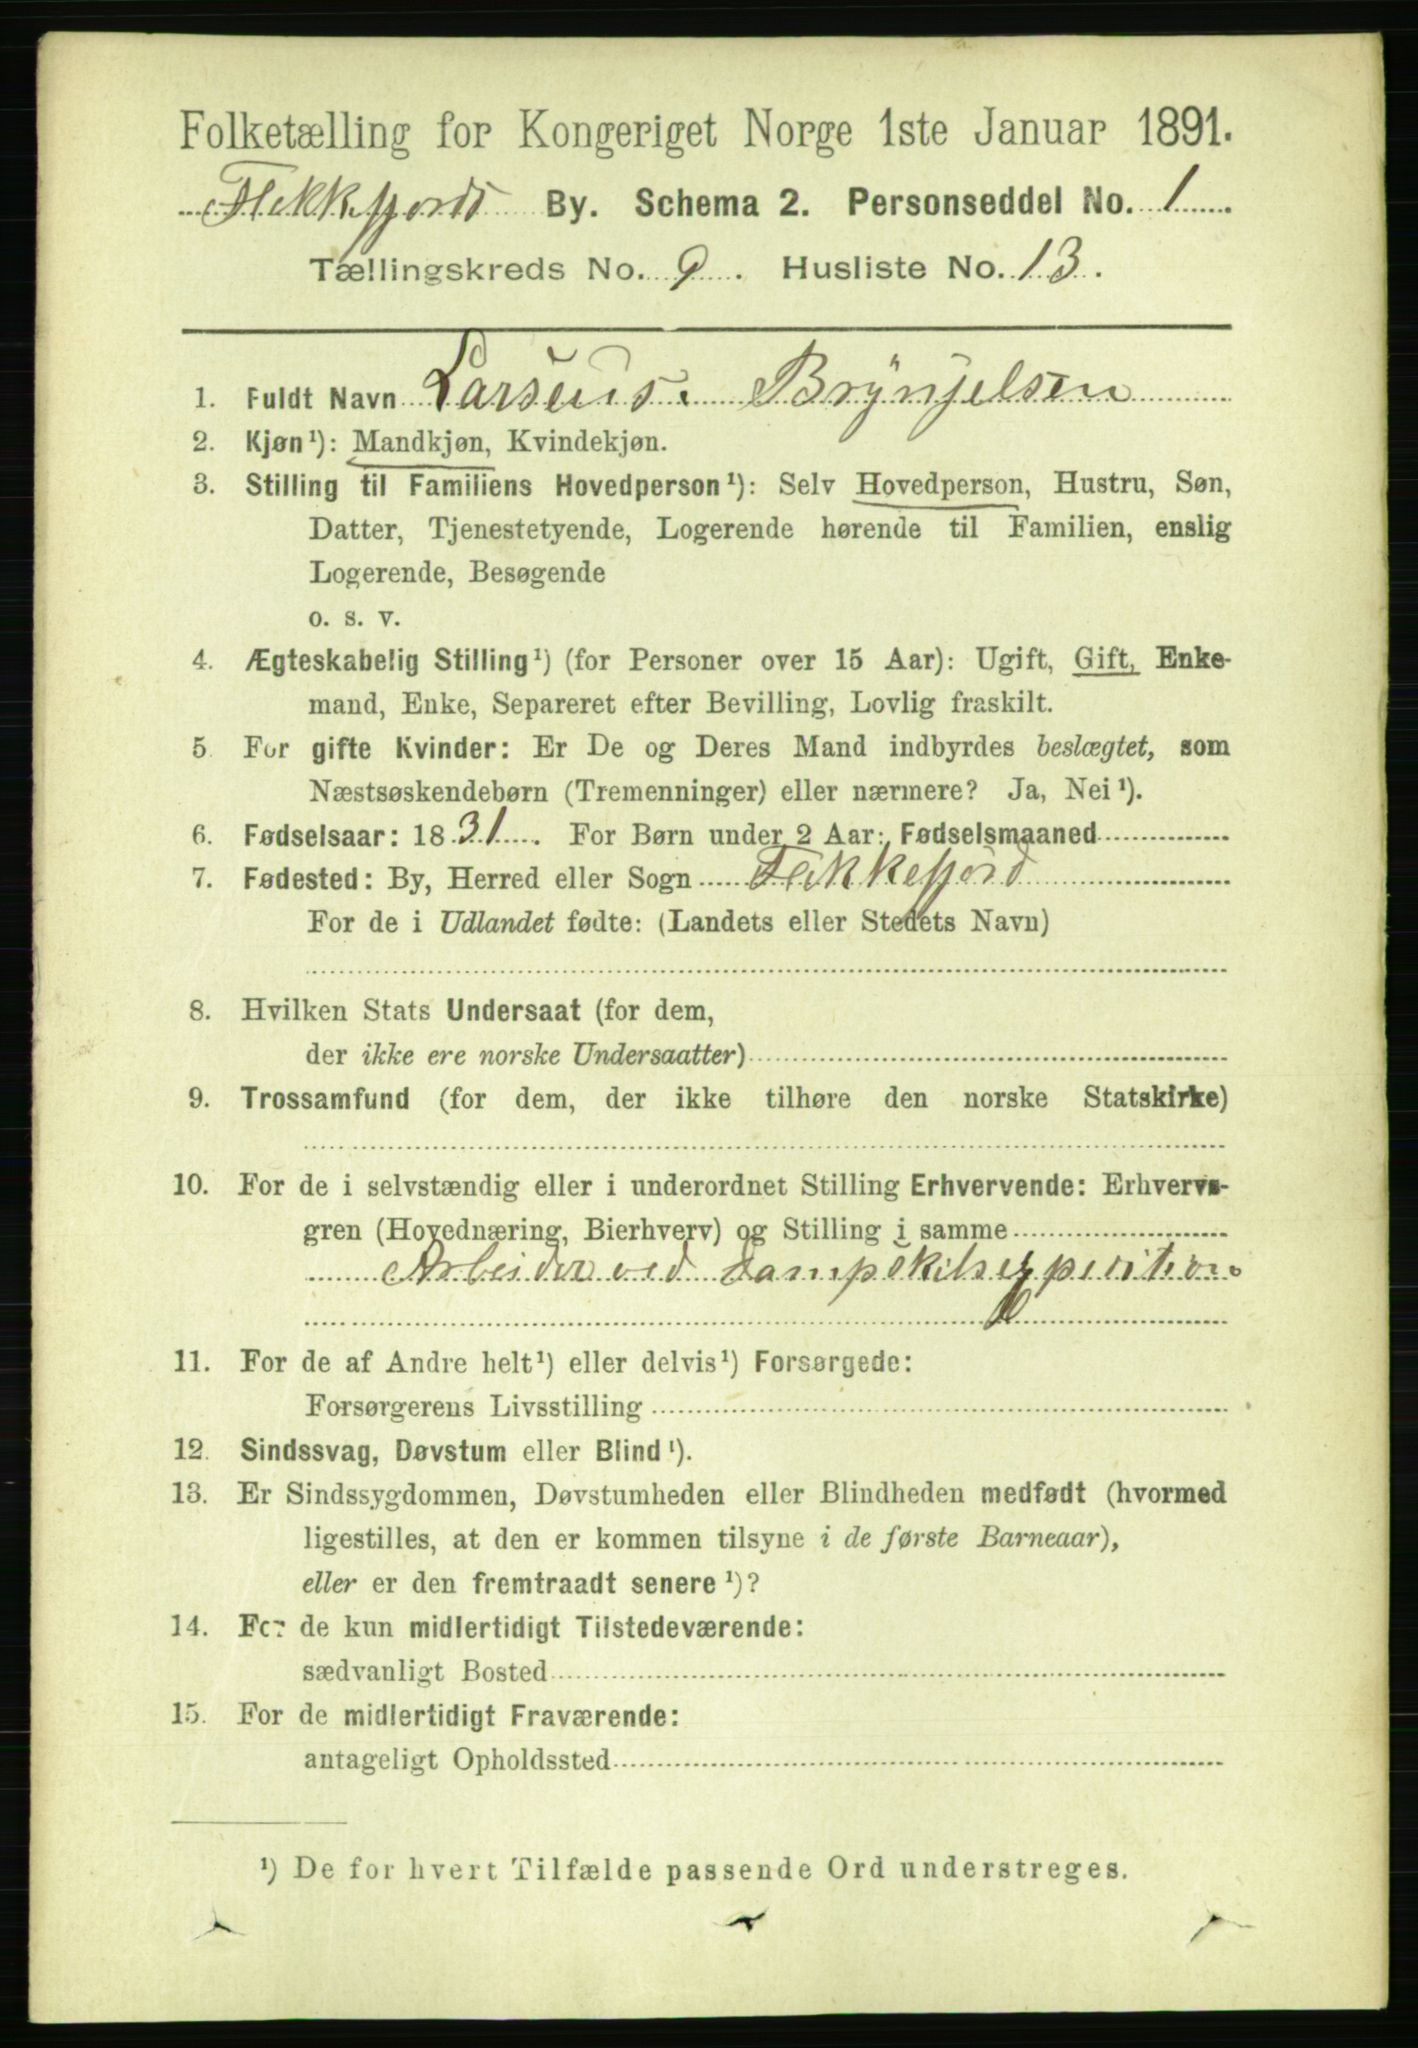 Folketælling for Kongeriget Norge 1ste Januar 1891.
Flekkefjords By. Schema 2. Personseddel No. 1
Tællingskreds No. 9. Husliste No. 13.
1. Fuldt Navn Larseus. Brynjelsen
2. Kjøn¹): Mandkjøn, Kvindekjøn.
3. Stilling til Familiens Hovedperson¹): Selv Hovedperson, Hustru, Søn,
Datter, Tjenestetyende, Logerende hørende til Familien, enslig
Logerende, Besøgende
o. s. v.
4. Ægteskabelig Stilling¹) (for Personer over 15 Aar): Ugift, Gift, Enke-
mand, Enke, Separeret efter Bevilling, Lovlig fraskilt.
5. For gifte Kvinder: Er De og Deres Mand indbyrdes beslægtet, som
Næstsøskendebørn (Tremenninger) eller nærmere? Ja, Nei¹).
6. Fødselsaar: 1831. For Børn under 2 Aar: Fødselsmaaned
7. Fødested: By, Herred eller Sogn Flekkefjord
For de i Udlandet fødte: (Landets eller Stedets Navn)
8. Hvilken Stats Undersaat (for dem,
der ikke ere norske Undersaatter)
9. Trossamfund (for dem, der ikke tilhøre den norske Statskirke)
10. For de i selvstændig eller i underordnet Stilling Erhvervende: Erhvervs-
gren (Hovednæring, Bierhverv) og Stilling i samme
Arbeider ved Dampskibsexpedition
11. For de af Andre helt¹) eller delvis¹) Forsørgede:
Forsørgerens Livsstilling
12. Sindssvag, Døvstum eller Blind¹).
13. Er Sindssygdommen, Døvstumheden eller Blindheden medfødt (hvormed
ligestilles, at den er kommen tilsyne i de første Barneaar),
eller er den fremtraadt senere¹)?
14. For de kun midlertidigt Tilstedeværende:
sædvanligt Bosted
15. For de midlertidigt Fraværende:
antageligt Opholdssted
¹) De for hvert Tilfælde passende Ord understreges.